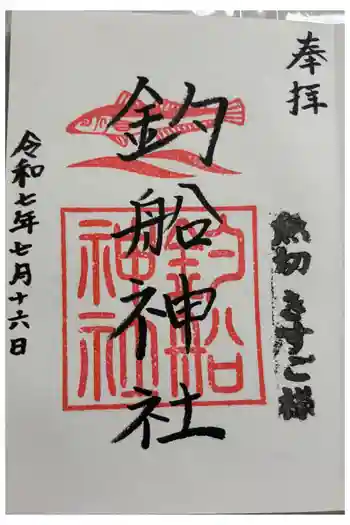 奉拝
魚切 きすご様
釣船神社
釣船神社
令和七年七月十六日